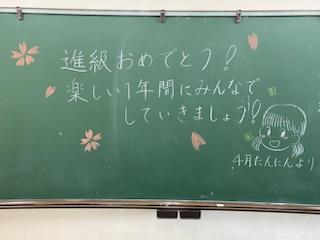 進級おめでとう!
楽しい1年間にみんなで
していきましょう!!
4月たんにんより